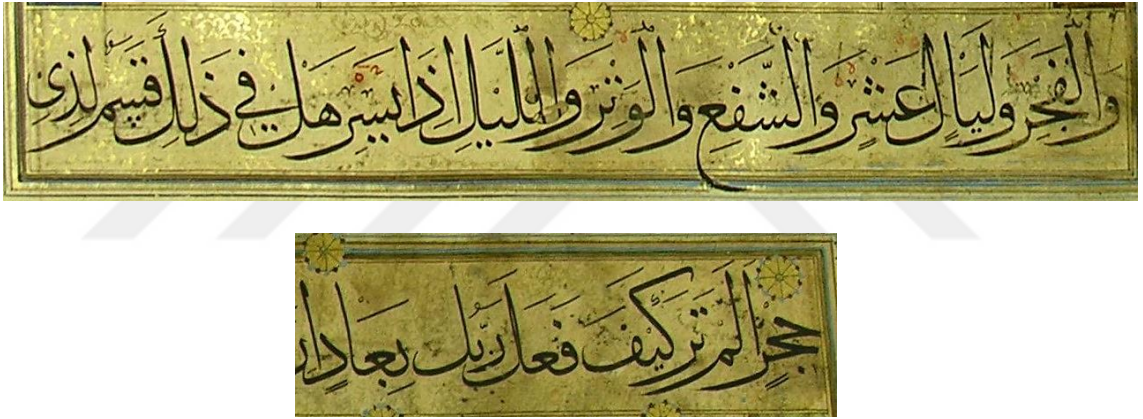 وَالْفَجْرِ وَلَيَالٍ عَشْرٍ وَالشَّفْعِ وَالْوَتْرِ وَاللَّيْلِ اِذَا يَسْرِ هَلْ فِي ذَلِكَ قَسَمٌ لِذِي
حِجْرٍ اَلَمْ تَرَ كَيْفَ فَعَلَ رَبُّكَ بِعَادٍ